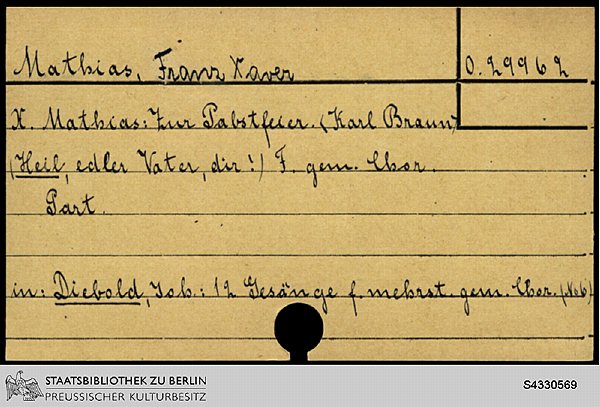 Mathias, Franz Xaver
O. 29962
X. Mathias: Zur Pabstfeier. (Karl Braun)
(Heil, edler Vater, dir!) F. gem. Chor.
Part.
in: Diebold, Joh.: 12 Gesänge f. mehrst. gem. Chor. (No 6)
STAATSBIBLIOTHEK ZU BERLIN
PREUSSISCHER KULTURBESITZ
S4330569